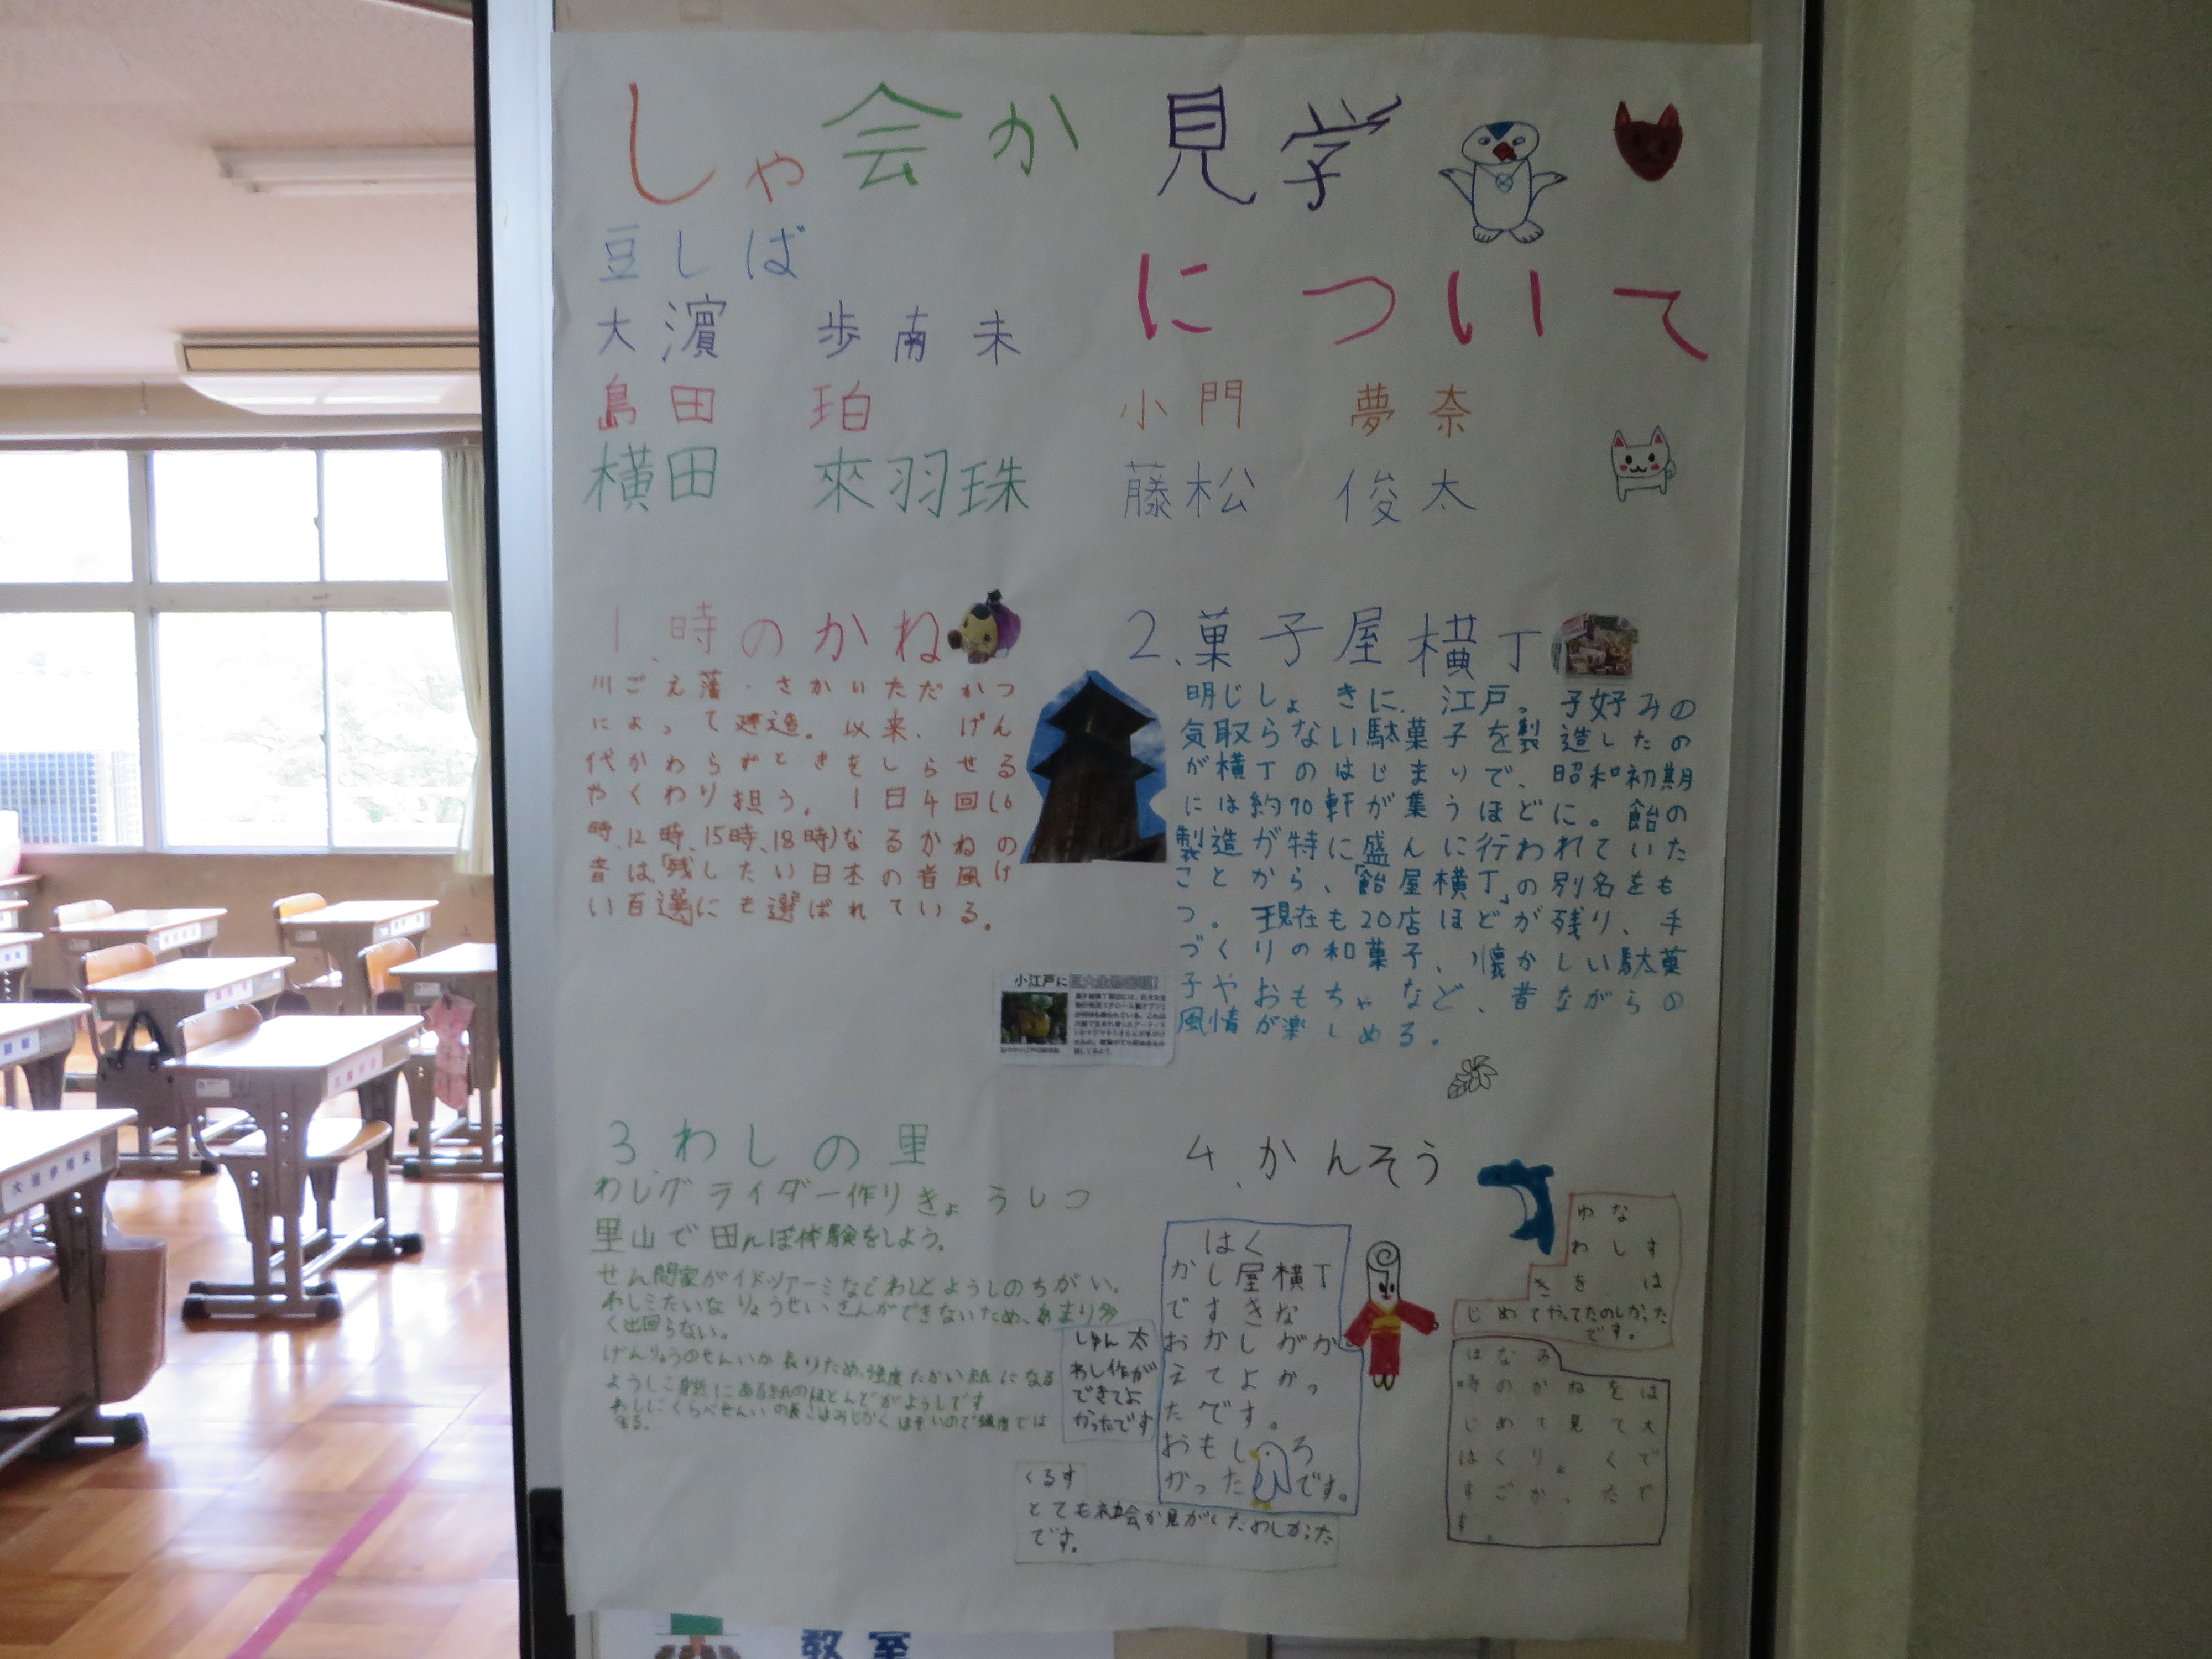 しゃ会か見学
について
豆しば
大濵 歩南未
島田 珀
横田 來羽珠
小門 夢奈
藤松 俊太
1.時のかね
川ごえ藩・さかいただかつ
によって建造。以来、げん
代かわらずときをしらせる
やくわり担う。1日4回(6
時、12時、15時、18時)なるかねの
音は「残したい日本の音風け
い百選にも選ばれている。
2、菓子屋横丁
明じしょきに、江戸っ子好みの
気取らない駄菓子を製造したの
が横丁のはじまりで、昭和初期
には約70軒が集うほどに。飴の
製造が特に盛んに行われていた
ことから、「飴屋横丁」の別名をも
つ。現在も20店ほどが残り、手
づくりの和菓子、懐かしい駄菓
子やおもちゃなど、昔ながらの
風情が楽しめる。
小江戸に
3、わしの里
わしグライダー作りきょうしつ
里山で田んぼ体験をしよう。
せん門家がイドツアーミなどわしとようしのちがい。
わしミたいなりょうせいさんができないため、あまり多
く出回らない。
げんりょうのせんいが長いため、強度たかい紙になる
ようしこ身近にある紙のほとんどがようしです
わしにくらべせんいの長こはみじかくほそいので強度では
劣る。
4、かんそう
はく
かし屋横丁
ですきな
おかしがか
えてよかっ
たです。
おもしろ
かったです。
しゅん太
わし作が
できてよ
かったです
くるす
とても社会か見がくたのしかった
です。
ゆな
わしす
きをは
じめてやってたのしかった
です。
はなみ
時のかねをは
じめて見て大
はくり。くで
すごか、たで
す。
教室